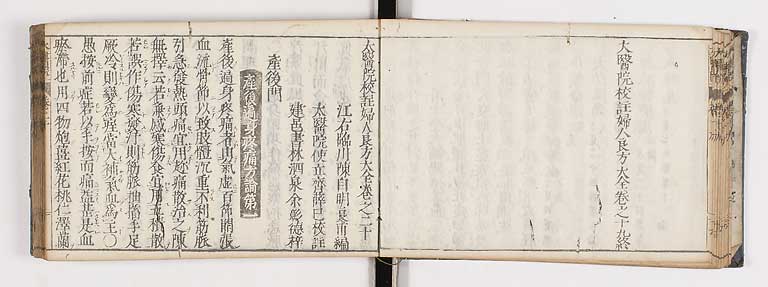 太醫院校註婦人良方大全卷之十九終
太醫院校註婦人良方大全卷之二十
江右臨川陳自明良甫編
太醫院使立齋薛己校註
建邑書林泗泉余彰德梓
產後門
產後遍身疼痛方論第一
產後遍身疼痛者由氣虛百節開張
血流骨節以致肢體沉重不利筋脉
引急發熱頭痛宜用趂痛散治之陳
無擇云若兼感寒傷食宜用五積散
若誤作傷寒發汗則筋脉抽搐手足
厥冷則變為痓當大補氣血為主〇
愚按前症若以手按而痛益甚是血
瘀滯也用四物炮薑紅花桃仁澤蘭